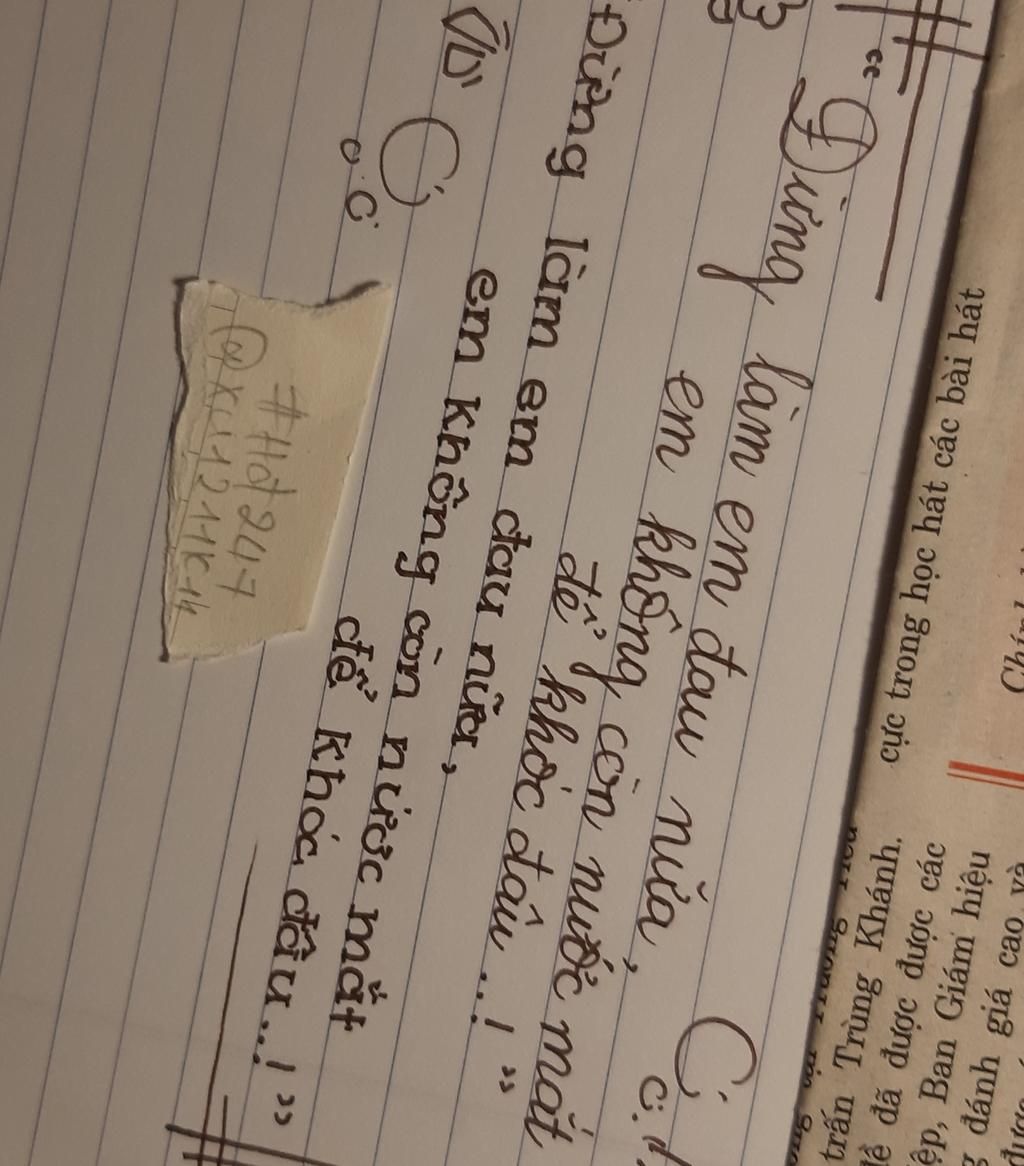 "Đừng làm em đau nữa,
em không còn nước mắt
để khóc đâu...!"
Đừng làm em đau nữa,
em không còn nước mắt
để khóc đâu...!"
#Hd247
cực trong học hát các bài hát
trấn Trùng Khánh.
đã được được các
Ban Giám hiệu
đánh giá cao và